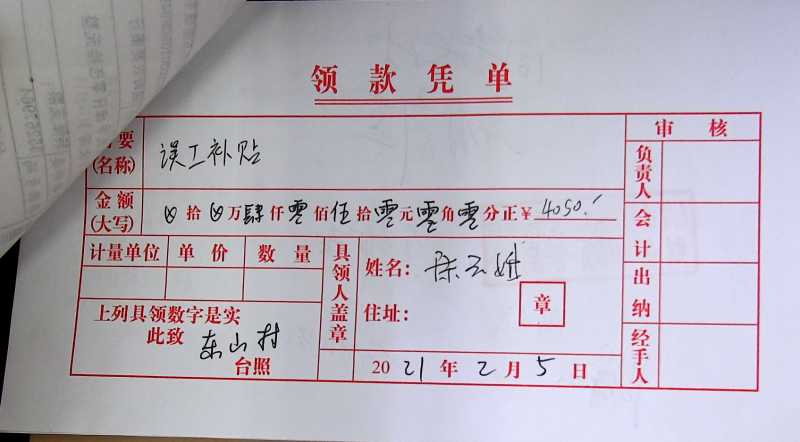 领款凭单
要 误工补贴
(名称)
金额 拾 万肆仟零佰伍拾零元零角零分正¥4050.
(大写)
计量单位 单价 数量
上列具领数字是实
此致 东山村
台照
具领人盖章
姓名:
住址:
章
2021年2月5日
审核
负责人
会计
出纳
经手人